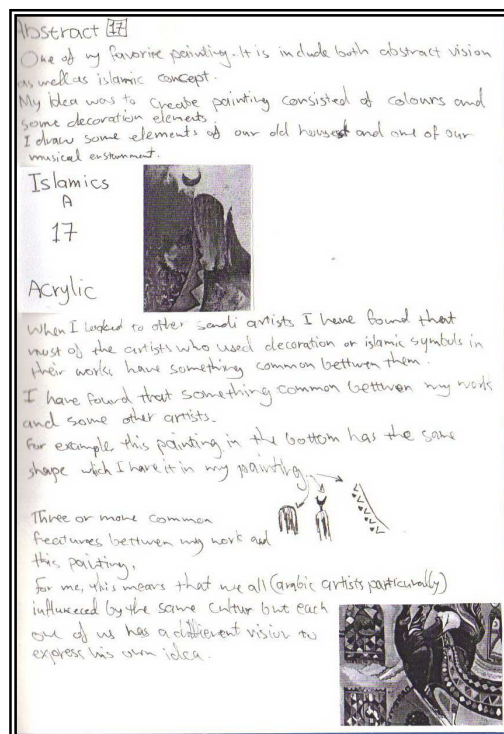 Abstract 17
One of my favorite painting. It is include both abstract vision
as well as islamic concept.
My Idea was to create painting consisted of colours and
some decoration elements
I draw some elements of our old houses and one of our
musical
Islamics
A
17
Acrylic
When I looked to other saudi artists I have found that
most of the artists who used decoration or islamic symbols in
their works have something common bettwen them.
I have found that something common bettwen my work
and some other artists.
For example this painting in the bottom has the same
shape wich I have it in my painting.
Three or more common
Features bettwen my work and
this painting.
For me, this means that we all (arabic artists particurally)
influneced by the same cultur but each
one of us has a different vision to
express his own idea.